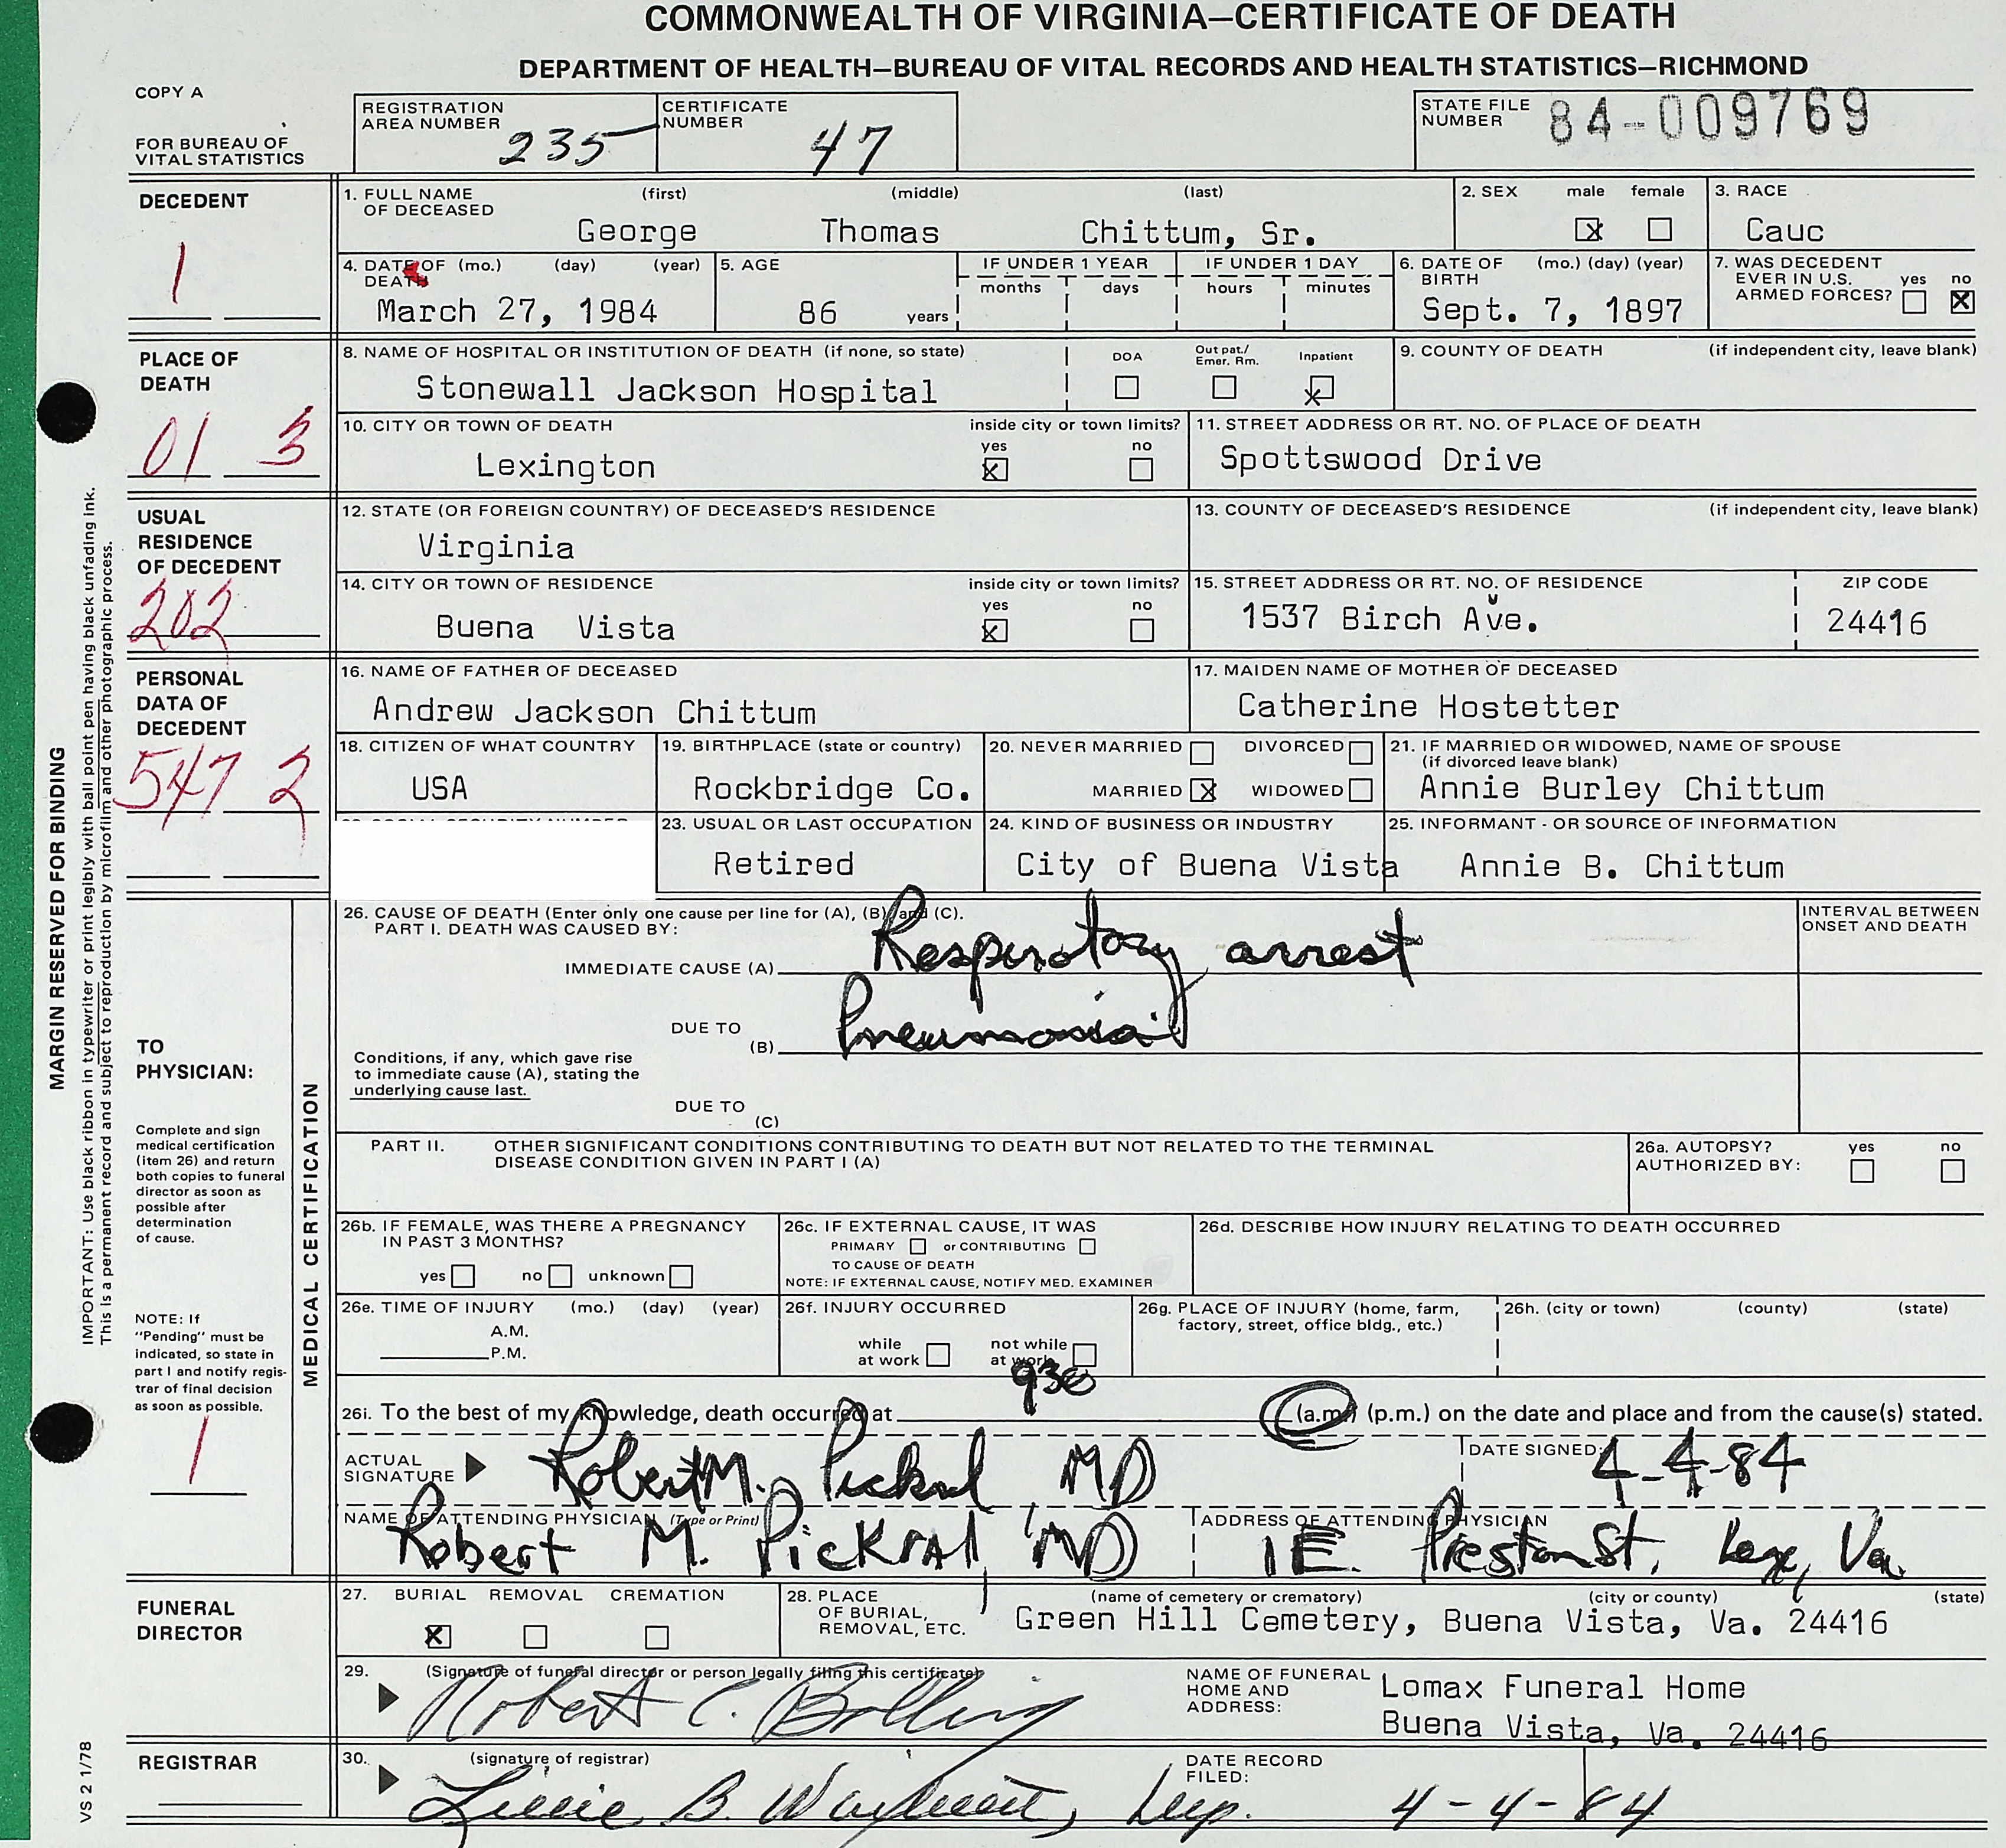 COMMONWEALTH OF VIRGINIA—CERTIFICATE OF DEATH
DEPARTMENT OF HEALTH—BUREAU OF VITAL RECORDS AND HEALTH STATISTICS—RICHMOND
COPY A
FOR BUREAU OF
VITAL STATISTICS
REGISTRATION
AREA NUMBER 235
CERTIFICATE
NUMBER 47
STATE FILE
NUMBER 84-009769
DECEDENT
1
1. FULL NAME (first) (middle) (last)
OF DECEASED
George Thomas Chittum, Sr.
2. SEX male female
x
3. RACE
Cauc
4. DATE OF (mo.) (day) (year)
DEATH
March 27, 1984
5. AGE
86 years
IF UNDER 1 YEAR
months days
IF UNDER 1 DAY
hours minutes
6. DATE OF (mo.) (day) (year)
BIRTH
Sept. 7, 1897
7. WAS DECEDENT
EVER IN U.S. yes no
ARMED FORCES? X
PLACE OF
DEATH
01 3
8. NAME OF HOSPITAL OR INSTITUTION OF DEATH (if none, so state)
Stonewall Jackson Hospital
DOA Out pat./ Inpatient
Emer. Rm.
x
9. COUNTY OF DEATH (if independent city, leave blank)
10. CITY OR TOWN OF DEATH inside city or town limits?
yes no
Lexington x
11. STREET ADDRESS OR RT. NO. OF PLACE OF DEATH
Spottswood Drive
USUAL
RESIDENCE
OF DECEDENT
202
12. STATE (OR FOREIGN COUNTRY) OF DECEASED'S RESIDENCE
Virginia
13. COUNTY OF DECEASED'S RESIDENCE (if independent city, leave blank)
14. CITY OR TOWN OF RESIDENCE inside city or town limits?
yes no
Buena Vista x
15. STREET ADDRESS OR RT. NO. OF RESIDENCE ZIP CODE
1537 Birch Ave. 24416
PERSONAL
DATA OF
DECEDENT
547 2
16. NAME OF FATHER OF DECEASED
Andrew Jackson Chittum
17. MAIDEN NAME OF MOTHER OF DECEASED
Catherine Hostetter
18. CITIZEN OF WHAT COUNTRY
USA
19. BIRTHPLACE (state or country)
Rockbridge Co.
20. NEVER MARRIED DIVORCED
MARRIED X WIDOWED
21. IF MARRIED OR WIDOWED, NAME OF SPOUSE
(if divorced leave blank)
Annie Burley Chittum
23. USUAL OR LAST OCCUPATION
Retired
24. KIND OF BUSINESS OR INDUSTRY
City of Buena Vista
25. INFORMANT - OR SOURCE OF INFORMATION
Annie B. Chittum
MARGIN RESERVED FOR BINDING
IMPORTANT: Use black ribbon in typewriter or print legibly with ball point pen having black unfading ink.
This is a permanent record and subject to reproduction by microfilm and other photographic process.
TO
PHYSICIAN:
Complete and sign
medical certification
(item 26) and return
both copies to funeral
director as soon as
possible after
determination
of cause.
NOTE: If
"Pending" must be
indicated, so state in
part I and notify regis-
trar of final decision
as soon as possible.
1
MEDICAL CERTIFICATION
26. CAUSE OF DEATH (Enter only one cause per line for (A), (B) and (C).
PART I. DEATH WAS CAUSED BY:
INTERVAL BETWEEN
ONSET AND DEATH
IMMEDIATE CAUSE (A) Respiratory arrest
DUE TO
(B) Pneumonia
Conditions, if any, which gave rise
to immediate cause (A), stating the
underlying cause last.
DUE TO
(C)
PART II. OTHER SIGNIFICANT CONDITIONS CONTRIBUTING TO DEATH BUT NOT RELATED TO THE TERMINAL
DISEASE CONDITION GIVEN IN PART I (A)
26a. AUTOPSY? yes no
AUTHORIZED BY:
26b. IF FEMALE, WAS THERE A PREGNANCY
IN PAST 3 MONTHS?
yes no unknown
26c. IF EXTERNAL CAUSE, IT WAS
PRIMARY or CONTRIBUTING
TO CAUSE OF DEATH
NOTE: IF EXTERNAL CAUSE, NOTIFY MED. EXAMINER
26d. DESCRIBE HOW INJURY RELATING TO DEATH OCCURRED
26e. TIME OF INJURY (mo.) (day) (year)
A.M.
P.M.
26f. INJURY OCCURRED
while not while
at work at work
26g. PLACE OF INJURY (home, farm,
factory, street, office bldg., etc.)
26h. (city or town) (county) (state)
26i. To the best of my knowledge, death occurred at 930 (a.m.) (p.m.) on the date and place and from the cause(s) stated.
ACTUAL
SIGNATURE Robert M. Pickral MD
DATE SIGNED: 4-4-84
NAME OF ATTENDING PHYSICIAN (Type or Print)
Robert M. Pickral, MD
ADDRESS OF ATTENDING PHYSICIAN
1 E. Preston St. Lex, Va.
FUNERAL
DIRECTOR
27. BURIAL REMOVAL CREMATION
x
28. PLACE (name of cemetery or crematory) (city or county) (state)
OF BURIAL,
REMOVAL, ETC.
Green Hill Cemetery, Buena Vista, Va. 24416
29. (Signature of funeral director or person legally filing this certificate)
Robert C. Bolling
NAME OF FUNERAL
HOME AND
ADDRESS:
Lomax Funeral Home
Buena Vista, Va. 24416
REGISTRAR
30. (signature of registrar)
B. Dep.
DATE RECORD
FILED:
4-4-84
VS 2 1/78